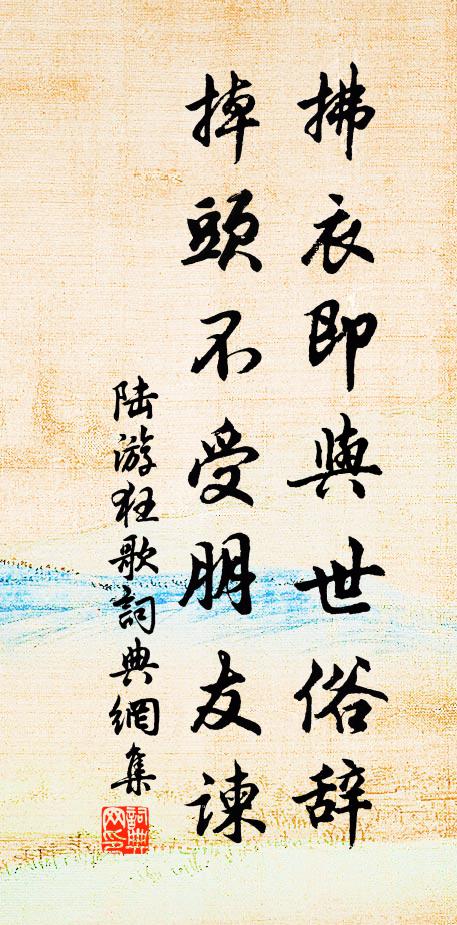 拂衣即與世俗辞
掉頭不受朋友諫
陆游狂歌詞典網集
詞典网印